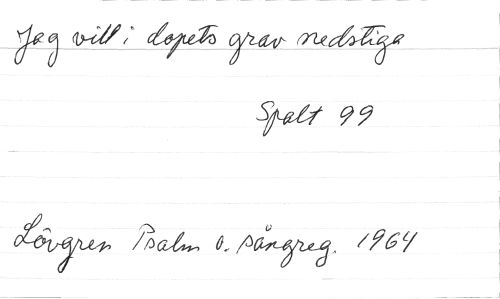 Jag vill i dopets grav nedstiga
Spalt 99
Lövgren Psalm o. sångreg. 1964